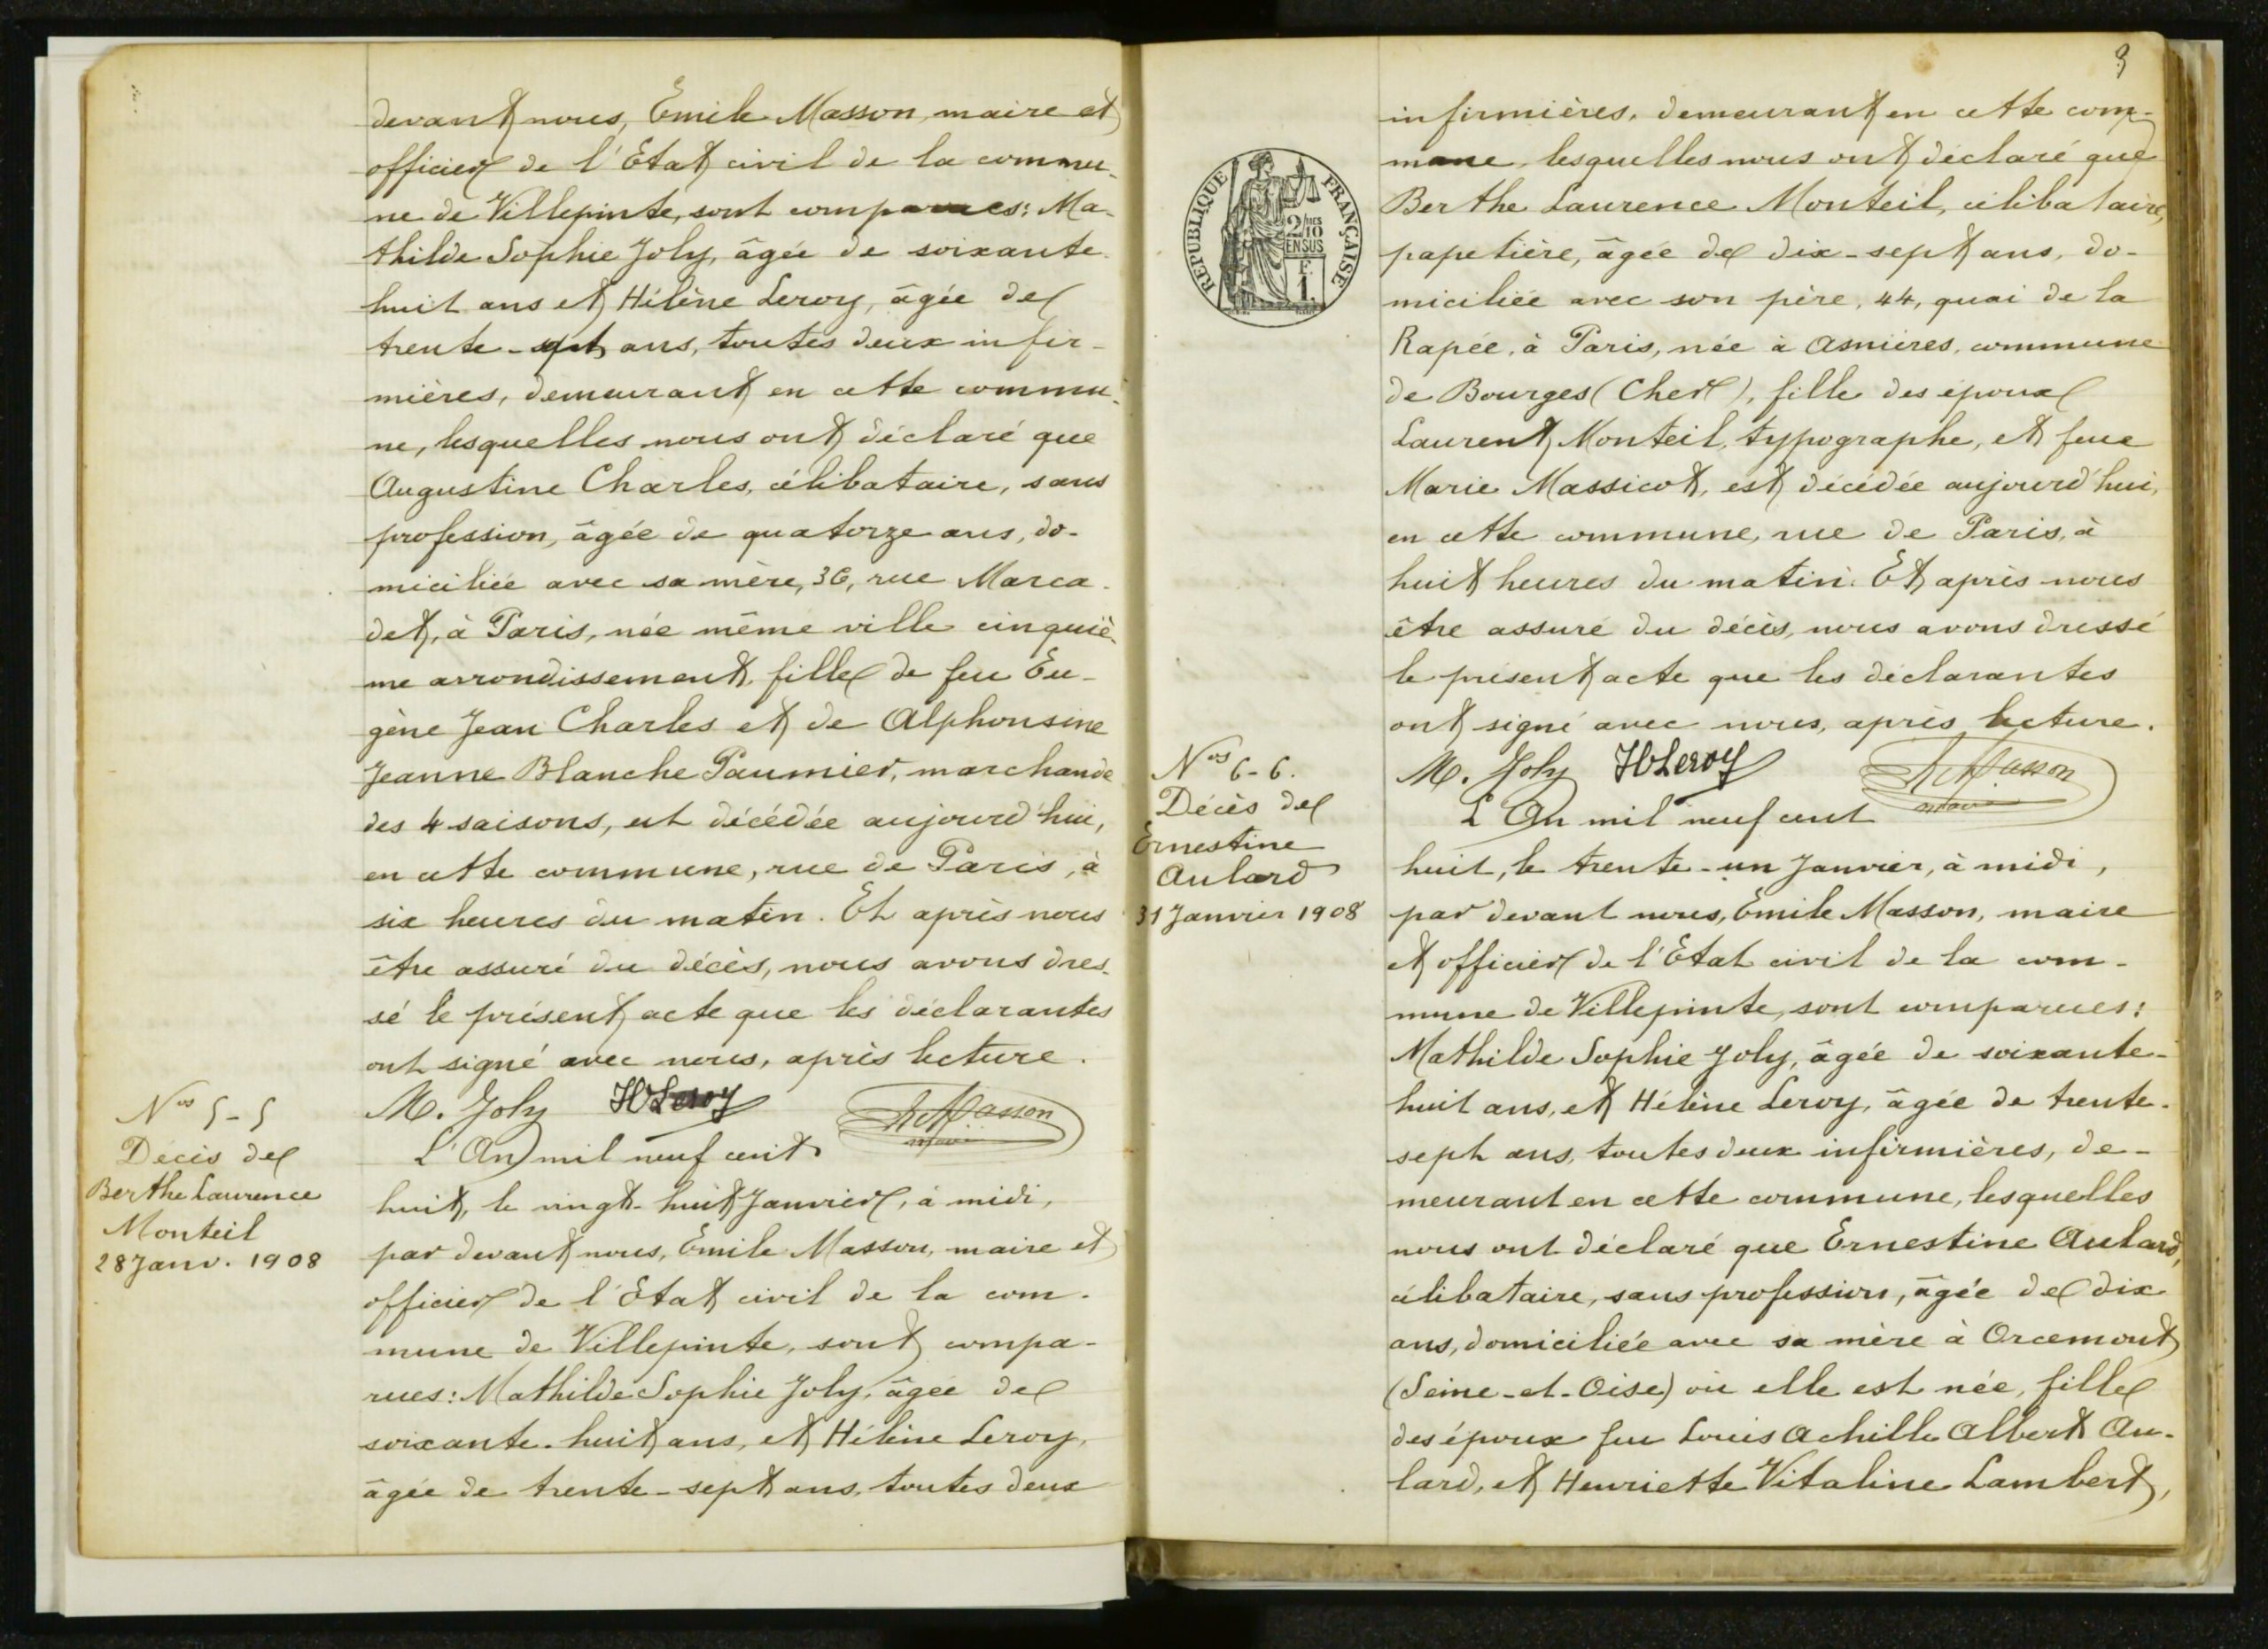 devant nous, Emile Masson, maire et
officier de l'Etat civil de la commu-
ne de Villepinte, sont comparues: Ma-
thilde Sophie Joly, âgée de soixante
huit ans et Hélène Leroy, âgée de
trente-sept ans, toutes deux infir-
mières, demeurant en cette commu-
ne, lesquelles nous ont déclaré que
Augustine Charles, célibataire, sans
profession, âgée de quatorze ans, do-
miciliée avec sa mère, 36, rue Marca-
det, à Paris, née même ville cinquiè-
me arrondissement, fille de feu Eu-
gène Jean Charles et de Alphonsine
Jeanne Blanche Paumier, marchande
des 4 saisons, est décédée aujourd'hui,
en cette commune, rue de Paris, à
six heures du matin. Et après nous
être assuré du décès, nous avons dres-
sé le présent acte que les déclarantes
ont signé avec nous, après lecture.
M. Joly HLeroy Masson
maire
Nos 5-5
Décès de
Berthe Laurence
Monteil
28 Janv. 1908
L'An mil neuf cent
huit, le vingt-huit Janvier, à midi,
par devant nous, Emile Masson, maire et
officier de l'Etat civil de la com-
mune de Villepinte, sont compa-
rues: Mathilde Sophie Joly, âgée de
soixante-huit ans, et Hélène Leroy,
âgée de trente-sept ans, toutes deux
3
RÉPUBLIQUE FRANÇAISE
2/10 DES
EN SUS
F.
1.
infirmières, demeurant en cette com-
mune, lesquelles nous ont déclaré que
Berthe Laurence Monteil, célibataire,
papetière, âgée de dix-sept ans, do-
miciliée avec son père, 44, quai de la
Rapée, à Paris, née à Asnières, commune
de Bourges (Cher), fille des époux
Laurent Monteil, typographe, et feue
Marie Massicot, est décédée aujourd'hui,
en cette commune, rue de Paris, à
huit heures du matin. Et après nous
être assuré du décès, nous avons dressé
le présent acte que les déclarantes
ont signé avec nous, après lecture.
M. Joly HLeroy Masson
maire
Nos 6-6.
Décès de
Ernestine
Aulard
31 Janvier 1908
L'An mil neuf cent
huit, le trente-un Janvier, à midi,
par devant nous, Emile Masson, maire
et officier de l'Etat civil de la com-
mune de Villepinte, sont comparues:
Mathilde Sophie Joly, âgée de soixante-
huit ans, et Hélène Leroy, âgée de trente-
sept ans, toutes deux infirmières, de-
meurant en cette commune, lesquelles
nous ont déclaré que Ernestine Aulard,
célibataire, sans profession, âgée de dix
ans, domiciliée avec sa mère à Orcemont
(Seine-et-Oise) où elle est née, fille
des époux feu Louis Achille Albert Au-
lard, et Henriette Vitaline Lambert,